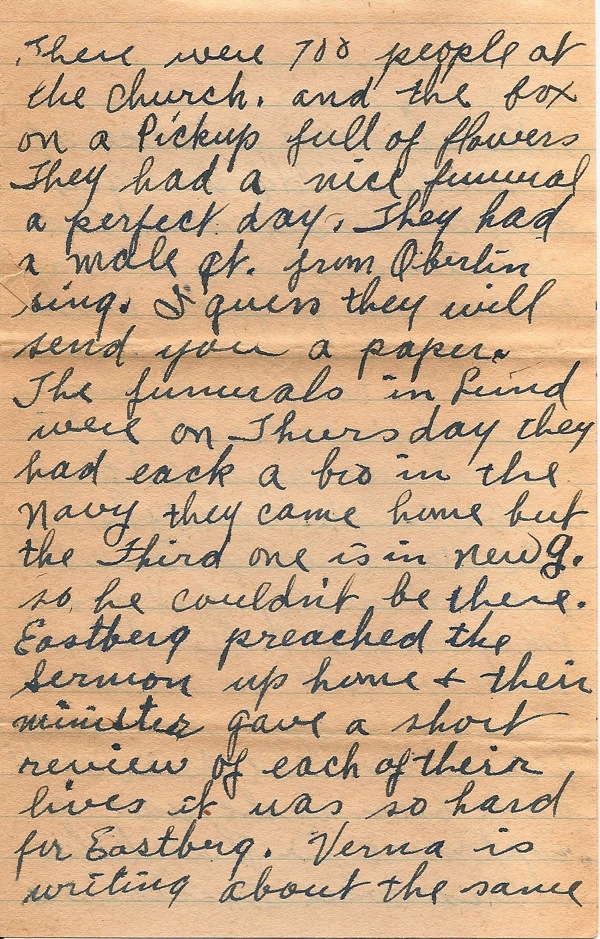 There were 700 people at
the church. and the box
on a Pickup full of flowers
They had a nice funeral
a perfect day. They had
a male qt. from Oberlin
sing. I guess they will
send you a paper.
The funerals in Lund
were on Thursday they
had eack a bro in the
Navy they came home but
the Third one is in new g.
so he couldn't be there.
Eastberg preached the
Sermon up home + their
minister gave a short
review of each of their
lives it was so hard
for Eastberg. Verna is
writing about the same